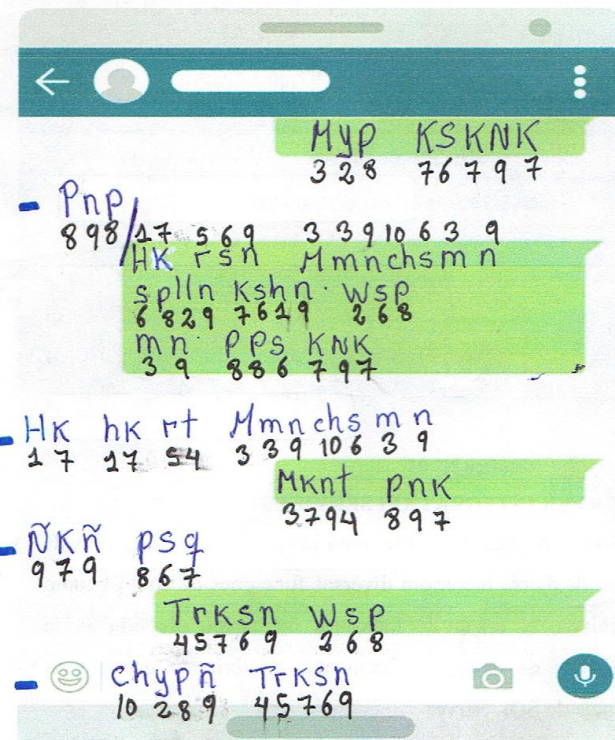 Myp KSKNK
328 76797
- Pnp
898/17 569 3 3910639
HK rsn Mmnchsmn
splln Kshn. Wsp
6829 7619 268
mn. PPs KNK
39 886 797
- HK hK rt Mmnchsmn
17 17 54 33910639
MKnt PnK
3794 897
- ÑKñ psq
979 867
TrKsn Wsp
45769 268
- Chypñ TrKsn
10 289 45769